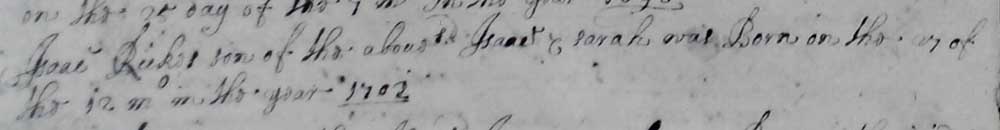 on the 25 day of the 7 m in the year
Isaac Rickes son of the above sd Isaac & sarah was Born on the 27 of
the 12 mo in the year 1702